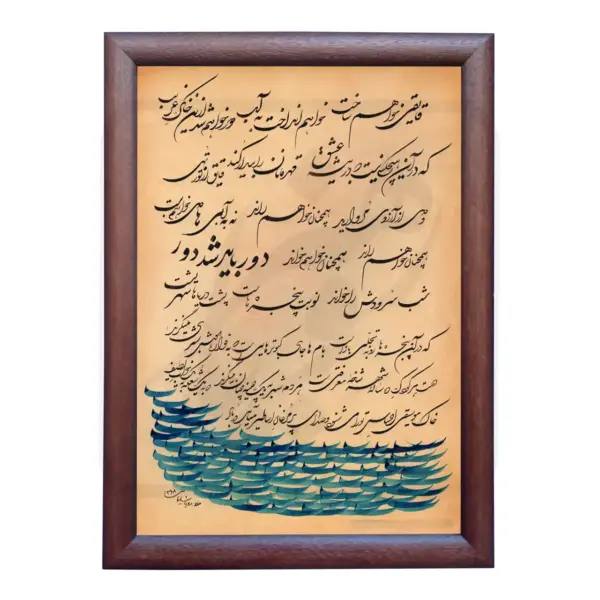 قایقی خواهم ساخت خواهم انداخت به آب دور خواهم شد از این خاک غریب
که در آن هیچکسی نیست که در بیشه عشق قهرمانان را بیدار کند قایق از تور تهی
و دل از آرزوی مروارید همچنان خواهم راند نه به آبی ها دل خواهم بست
همچنان خواهم راند همچنان خواهم خواند دور باید شد دور
شب سرودش را خواند نوبت پنجره هاست پشت دریاها شهریست
که در آن پنجره ها رو به تجلی باز است بام ها جای کبوترهایی است که به فواره هوش بشری مینگرند
دست هر کودک ده ساله شهر شاخه معرفتی است مردم شهر به یک چینه چنان مینگرند که به یک شعله به یک خواب لطیف
خاک موسیقی احساس ترا می شنود و صدای پر مرغان اساطیر میآید در باد